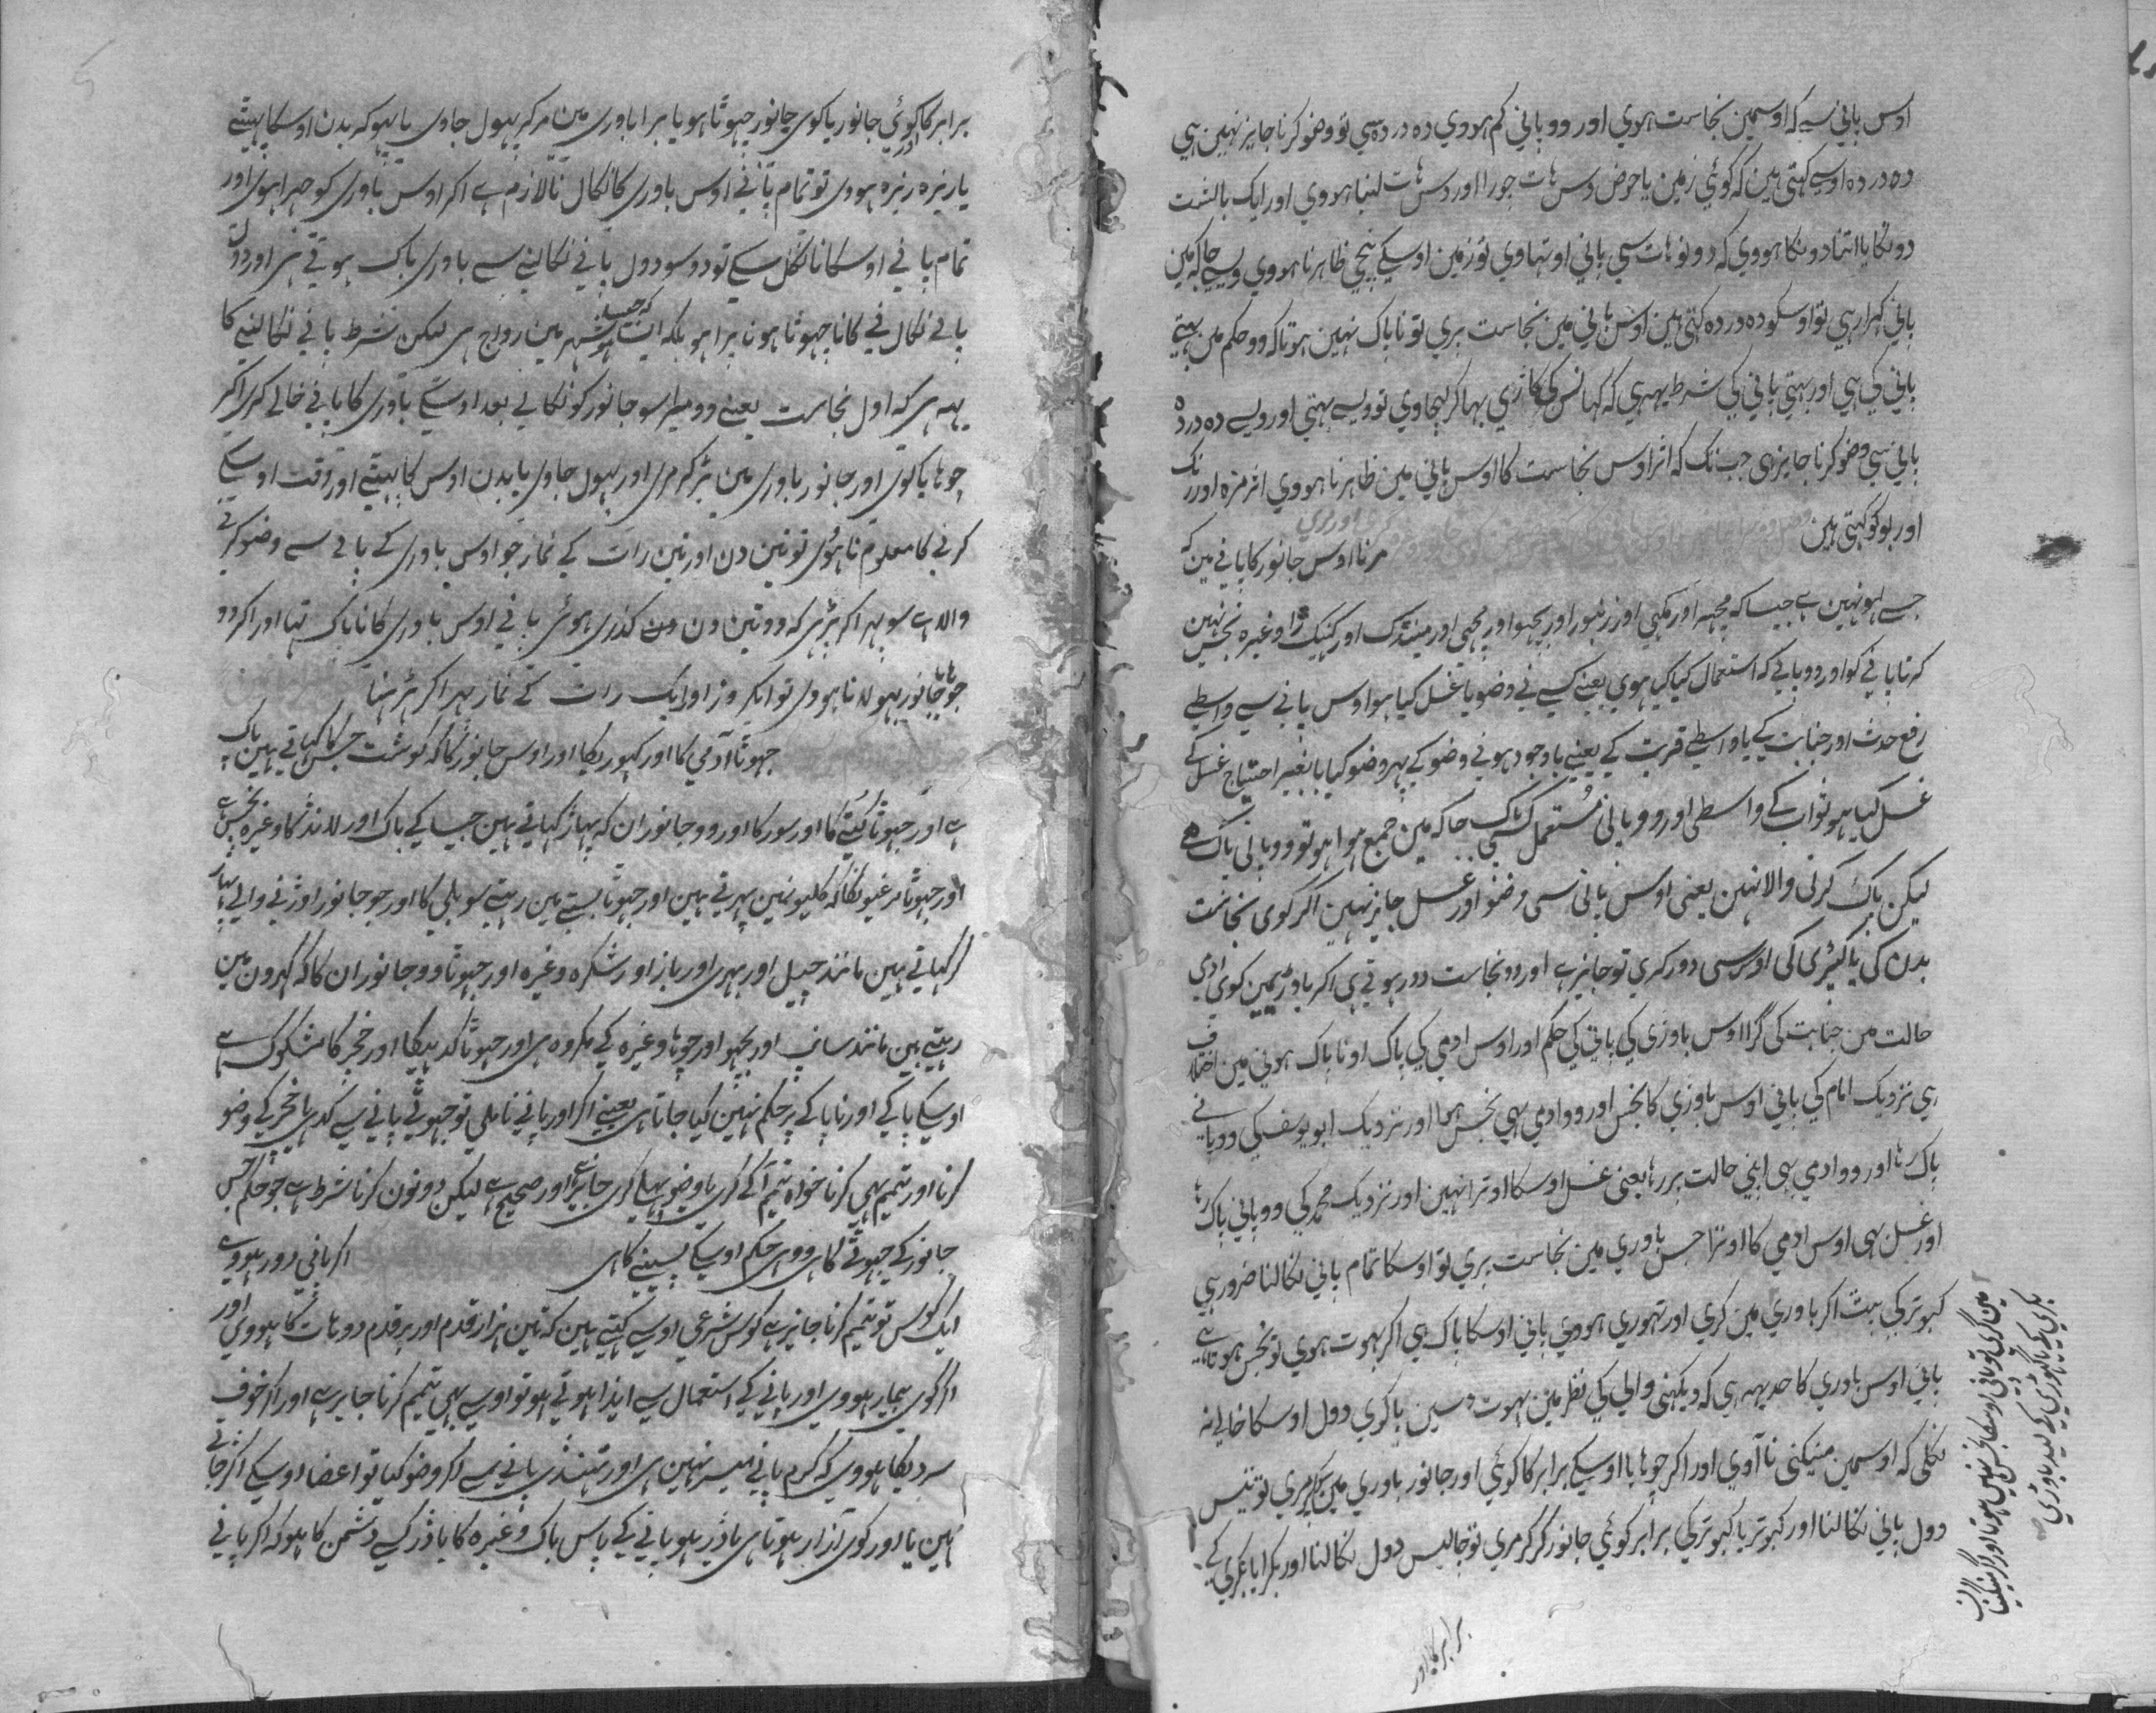 اوس پانی سے کہ اوسمین نجاست ہووي اور وو پاني کم ہووي دہ در دہ سي تو وضو کرنا جایز نہین ہي
دہ در دہ اوسے کہتي ہین کہ کوئي زمین یا حوض دس ہات چورا اور دس ہات لنبا ہووي اور ایک بالشت
دونگا یا اتنا دونگا ہووي کہ دونو ہات سي پاني اوتہاوي تو زمین اوسکے نیچي ظاہر نا ہووي ویسے جاکہ مین
پاني کہرا رہي تو اوسکو دہ در دہ کہتي ہین اوس پاني مین نجاست پري تو ناپاک نہین ہوتا کہ وو حکم مین بہتے
پاني کي ہي اور بہتي پاني کي شرط یہہ ہي کہ کہانس کي کاري بہا کر لیجاوي تو ویسے بہتي اور ویسے دہ در دہ
پاني سي وضو کرنا جایز ہي جب تک کہ اثر اوس نجاست کا اوس پاني مین ظاہر نا ہووي اثر مزہ اور رنک
اور بو کو کہتي ہین مرنا اوس جانور کا پانے مین کہ
جسے لہو نہین ہے جیسا کہ مچہر اور مکہي اور زنبور اور بچہو اور مچہي اور مینڈک اور کیکڑا وغیرہ نجس نہین
کرتا پانے کو اور وو پانے کہ استعمال کیا کیا ہوي یعنے کسے نے وضو یا غسل کیا ہو اوس پانے سے واسطے
رفع حدث اور جنابت کے یا واسطے قربت کے یعنے باوجود ہونے وضو کے پہر وضو کیا یا بغیر احتیاج غسل کے
غسل کیا ہو ثواب کے واسطي اور وو پاني مستعمل کسي پاک جاکہ مین جمع ہوا ہو تو وو پاني پاک ہے
لیکن پاک کرني والا نہین یعني اوس پاني سي وضو اور غسل جایز نہین اکر کوي نجاست
بدن کي یا کپڑي کي اوس سي دور کري تو جایز ہے اور وو نجاست دور ہوتي ہي اکر باوڑیمین کوي ادمي
حالت مین جنابت کي گرا اوس باوڑي کي پاني کي حکم اور اوس ادمي کي پاک او ناپاک ہوني مین اختلاف
ہي نزدیک امام کي پاني اوس باوڑي کا نجس اور وو ادمي بہي نجس ہوا اور نزدیک ابو یوسف کي وو پانے
پاک رہا اور وو ادمي بہي اپني حالت پر رہا یعني غسل اوسکا اوترا نہین اور نزدیک محمد کي وو پاني پاک رہا
اور غسل بہي اوس ادمي کا اوترا جس باوري مین نجاست پري تو اوسکا تمام پاني نکالنا ضرور ہي
کبوتر کي بیٹ اکر باوري مین کري اور تہوري ہووي پاني اوسکا پاک ہي اکر بہوت ہوي تو نجس ہوتا ہے
پاني اوس باوري کا حد یہہ ہي کہ دیکہني والي کي نظر مین بہوت دسین یا کوي دول اوسکا خالے نہ
نکلي کہ اوسمین مینکني نا آوي اور اکر چوہا یا اوسکے برابر کا کوئي اور جانور باوري مین کر مري تو تیس
دول پاني نکالنا اور کبوتر یا کبوتر کي برابر کوئي جانور گر کر مري تو چالیس دول نکالنا اور بکرا یا بکري کے
برابر کا اور
برابر کا کوئي جانور یا کوي جانور چہوٹا ہو یا برا باوري مین مر کر پہول جاوي یا پہوکہ بدن اوسکا پہٹے
یا ریزہ ریزہ ہووي تو تمام پانے اوس باوري کا نکال نا لازم ہے اکر اوس باوري کو جہرا ہوي اور
تمام پانے اوسکا نا نکل سکے تو دو سو دول پانے نکالنے سے باوري پاک ہوتے ہي اور دول
پانے نکال نے کا نا چہوٹا ہو نا برا ہو بلکہ ایسا ہو کہ جیسا شہر مین رواج ہي لیکن شرط پانے نکالنے کا
یہہ ہي کہ اول نجاست یعنے وو میلا سو جانور کو نکالے بعد اوسکے باوري کا پانے خالے کري اکر
چوہا یا کوي اور جانور باوري مین پڑ کر مري اور پہول جاوي یا بدن اوس کا پہٹے اور وقت اوسکے
کرنے کا معلوم نا ہوئي تو تین دن اور تین رات کے نماز جو اوس باوري کے پانے سے وضو کرنے
والا ہے سو پہر اکر پڑہي کہ وو تین دن مین کذري ہوئي پانے اوس باوري کا ناپاک تہا اور اکر وو
جانور پہولا نا ہووي تو ایکروز اور ایک رات کے نماز پہرا کر پڑہنا
جہوٹا آدمي کا اور کہوریکا اور اوس جانور کا کہ کوشت جسکا کہاتے ہین پاک
ہے اور جہوٹا کتے کا اور سور کا اور وو جانوران کہ پہاڑ کہاتے ہین جیسا کے باک اور لاندگا وغیرہ نجس ہے
اور جہوٹا مرغیونکا کہ کلیونمین پہرتے ہین اور جہوٹا بستے مین رہتے سو بلي کا اور جو جانور اوڑنے والے پہاڑ
کر کہاتے ہین مانند چیل اور بہري اور باز اور شکرہ وغیرہ اور جہوٹا وو جانوران کا کہ کہرون مین
رہتے ہین مانند سانپ اور بچہو اور چوہا وغیرہ کے مکروہ ہي اور جہوٹا کدہیکا اور خچر کا مشکوک ہے
اوسکے پاکے اور ناپاکے پر حکم نہین کیا جاتا ہي یعنے اکر اور پانے نا ملي تو جہوٹے پانے سے کدہي یا خچر کے وضو
کرنا اور تیمم بہي کرنا خواہ تیمم آکے کري یا وضو پہلے کري جایز ہے اور صحیح ہے لیکن دونون کرنا شرط ہے جو حکم جس
جانور کے جہوٹے کا ہي ووہي حکم اوسکے پسینے کا ہي اکر پاني دور ہلووے
ایک کوس تو تیمم کرنا جایز ہے کوس شرعي اوسے کہتے ہین کہ تین ہزار قدم اور ہر قدم دو ہات کا ہلووي اور
اکر کوي بیمار ہلووي اور پانے کے استعمال سے ایذا ہلوتے ہلو تو اوسے بہي تیمم کرنا جایز ہے اور اکر خوف
سردیکا ہلووي کہ کرم پانے میسر نہین ہي اور تہنڈي پانے سے اکر وضو کیا تو اعضا اوسکے اکڑ جاتے
ہین یا اور کوي آزار ہلوتا ہي یا ڈر ہلو پانے کے پاس باک وغیرہ کا یا ڈر کسے دشمن کا ہلو کہ اکر پانے